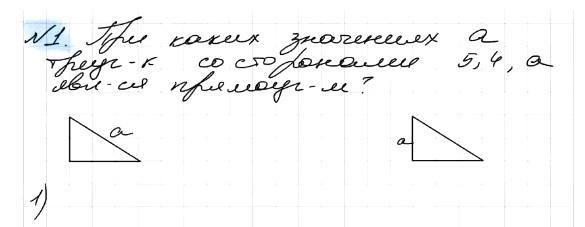 №1. При каких значениях a
треуг-к со сторонами 5, 4, a
явл-ся прямоуг-м?
a
a
1)